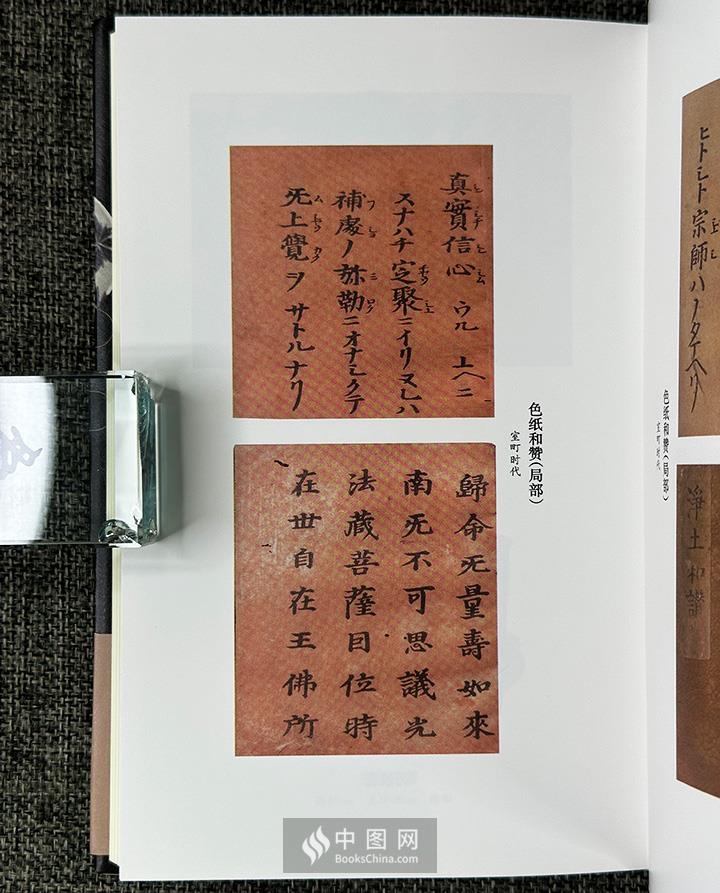 真實信心ウルユヘニ
スナハチ定聚ニイリヌレハ
補處ノ弥勒ニオナシクテ
无上覺ヲサトルナリ
歸命无量壽如來
南无不可思議光
法藏菩薩因位時
在世自在王佛所
色纸和赞(局部)
室町时代
ヒトシト宗師ハノタマヘリ
淨土和讃
色纸和赞(局部)
室町时代
中图网
BooksChina.com